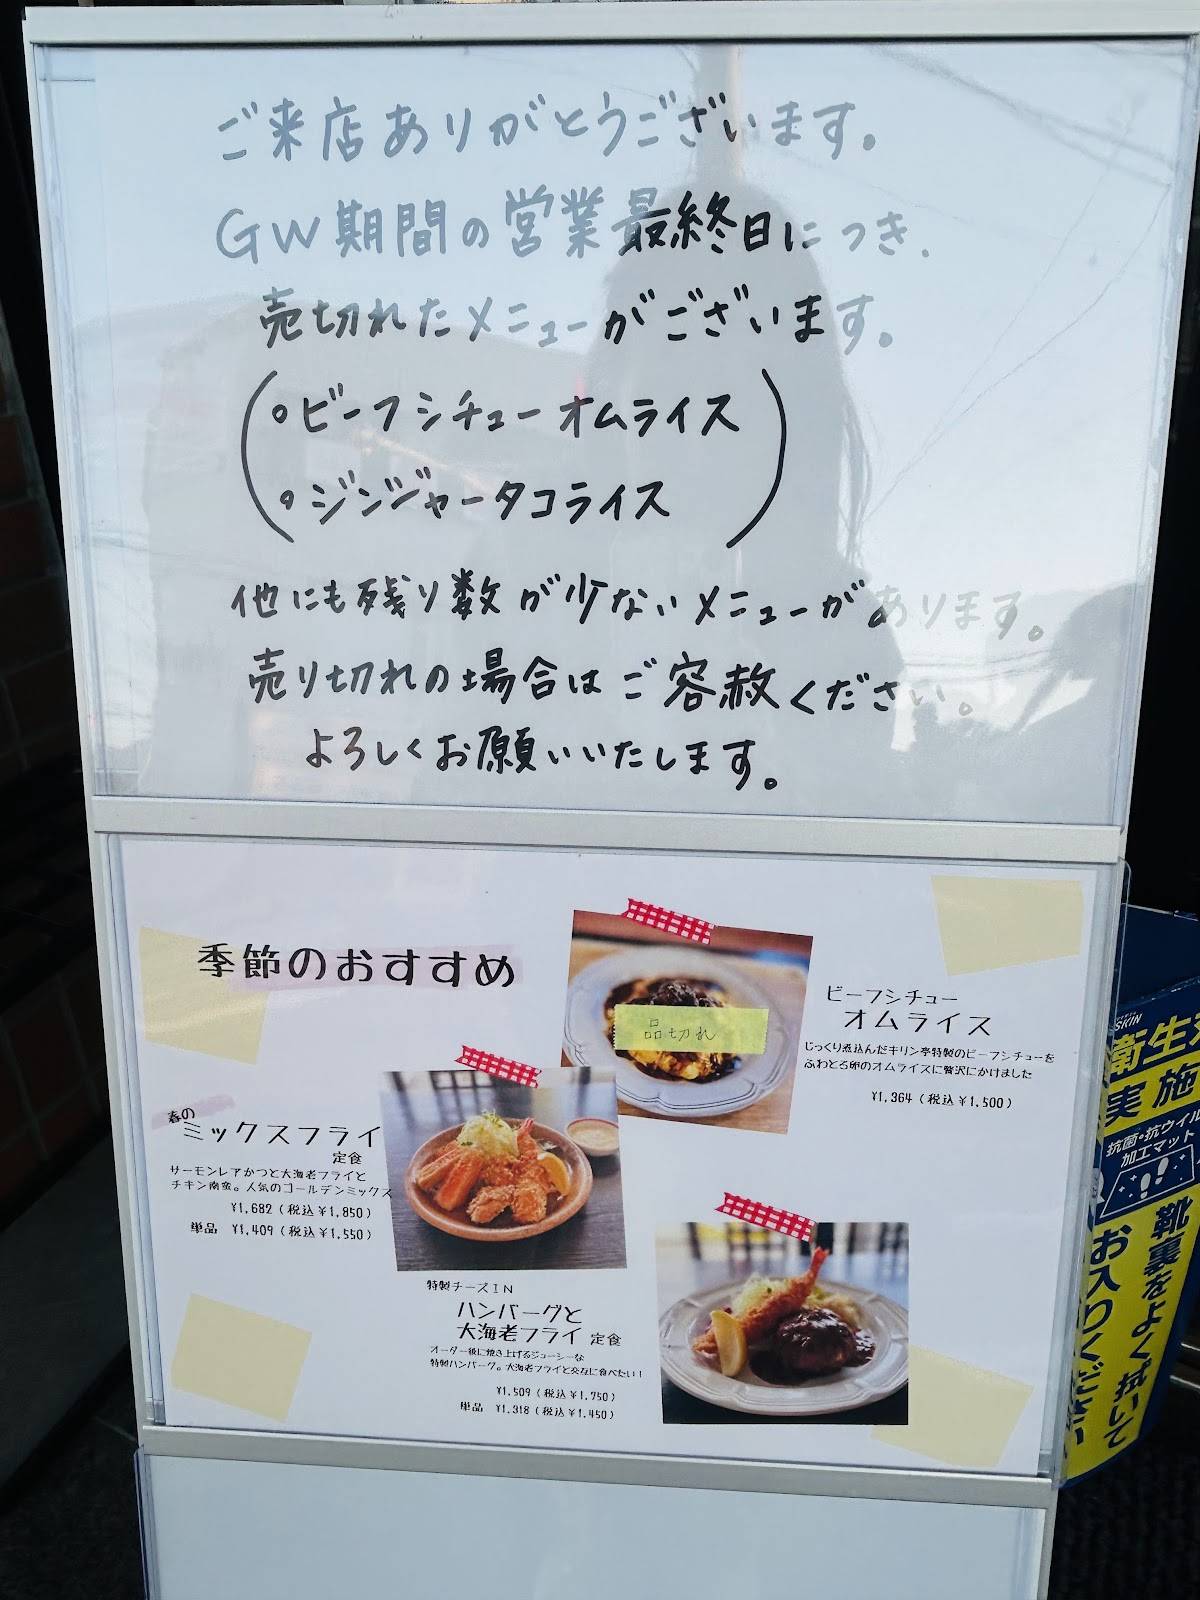 ご来店ありがとうございます。
GW期間の営業最終日につき、
売切れたメニューがございます。
(
。ビーフシチューオムライス
。ジンジャータコライス
)
他にも残り数が少ないメニューがあります。
売り切れの場合はご容赦ください。
よろしくお願いいたします。
季節のおすすめ
品切れ
ビーフシチュー
オムライス
じっくり煮込んだキリン亭特製のビーフシチューを
ふわとろ卵のオムライスに贅沢にかけました
¥1,364(税込¥1,500)
春の
ミックスフライ
定食
サーモンレアかつと大海老フライと
チキン南蛮。人気のゴールデンミックス
¥1,682(税込¥1,850)
単品 ¥1,409(税込¥1,550)
特製チーズIN
ハンバーグと
大海老フライ 定食
オーダー後に焼き上げるジューシーな
特製ハンバーグ。大海老フライと交互に食べたい!
¥1,509(税込¥1,750)
単品 ¥1,318(税込¥1,450)
SKIN
衛生
実施
抗菌・抗ウイル
加工マット
靴裏をよく拭いて
お入りください